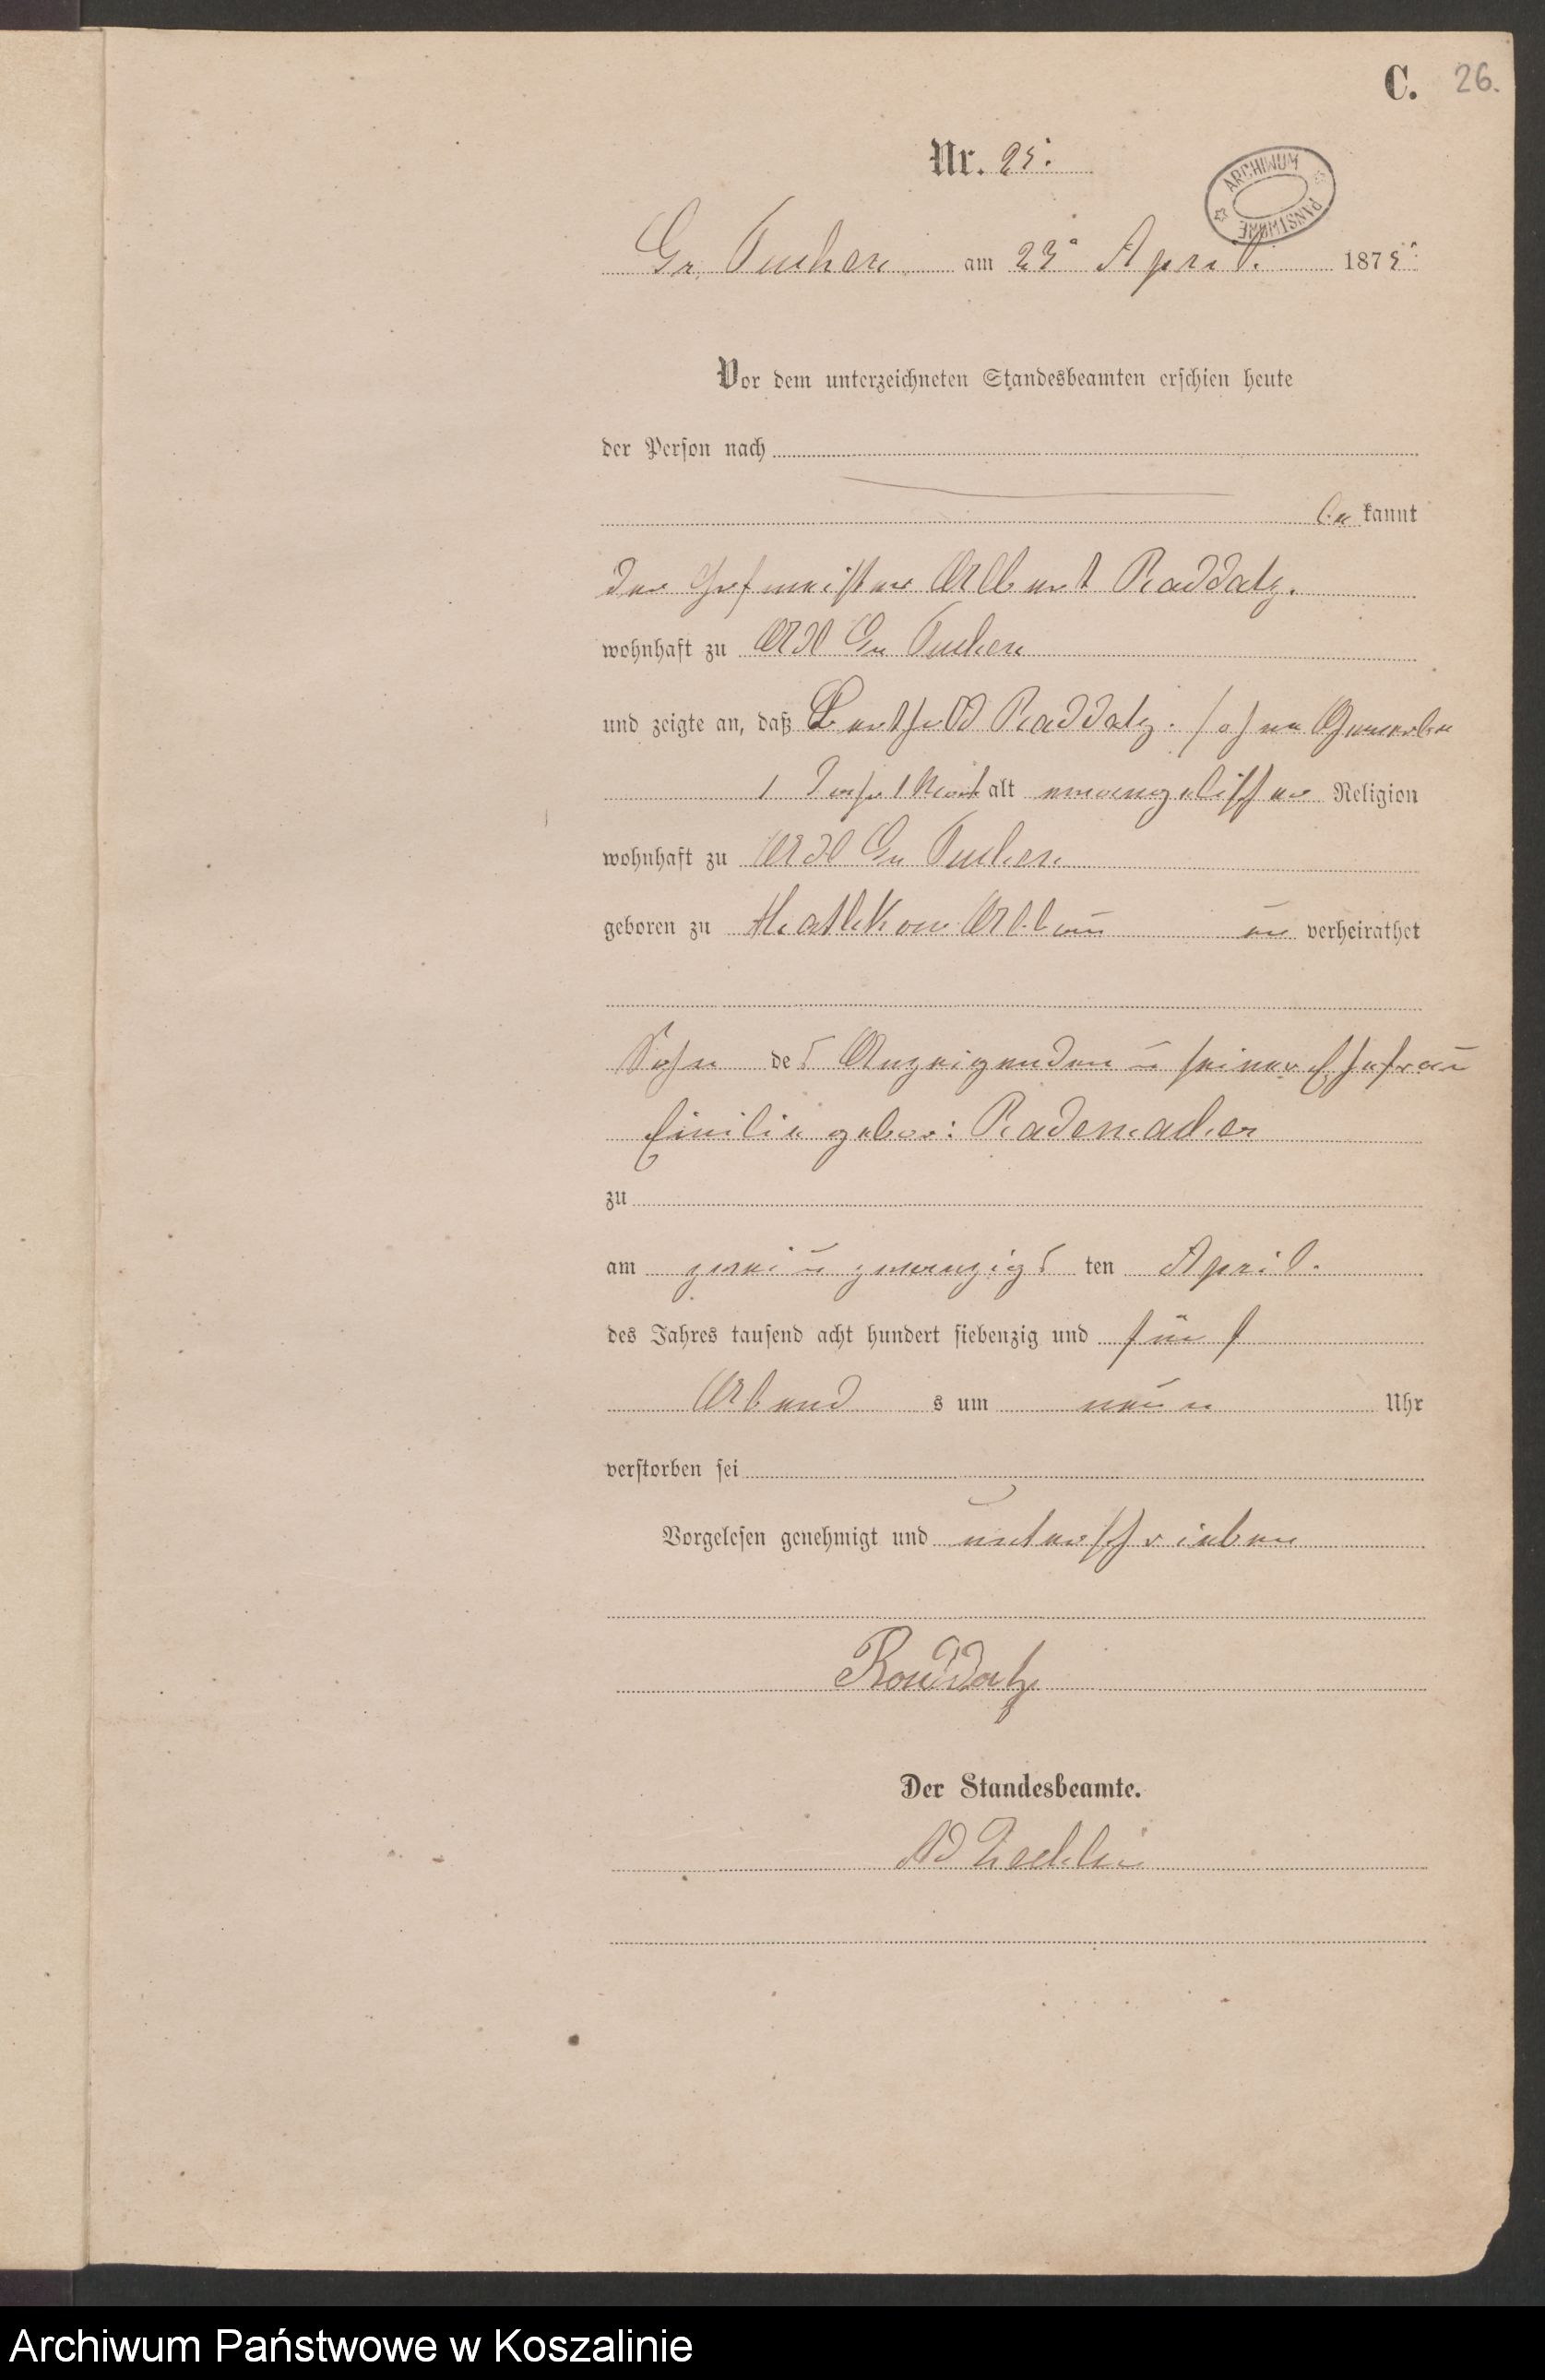 C. 26.
Nr. 25.
ARCHIWUM PAŃSTWOWE
Gr. Tuchen am 23 April 1875
Vor dem unterzeichneten Standesbeamten erschien heute
der Person nach
be kannt
der Hofmeister Albert Raddatz.
wohnhaft zu Adl Gr Tuchen
und zeigte an, daß Berthold Raddatz. ohne Gewerbe
1 Jahr 1 Monat alt evangelischer Religion
wohnhaft zu Adl Gr Tuchen
geboren zu un verheirathet
Sohn des Anzeigenden u seiner Ehefrau
Emilie gebor: Rademacher
zu
am zwei u zwanzigs ten April.
des Jahres tausend acht hundert siebenzig und fünf
Abend s um neun Uhr
verstorben sei
Vorgelesen genehmigt und unterschrieben
Raddatz
Der Standesbeamte.
Archiwum Państwowe w Koszalinie